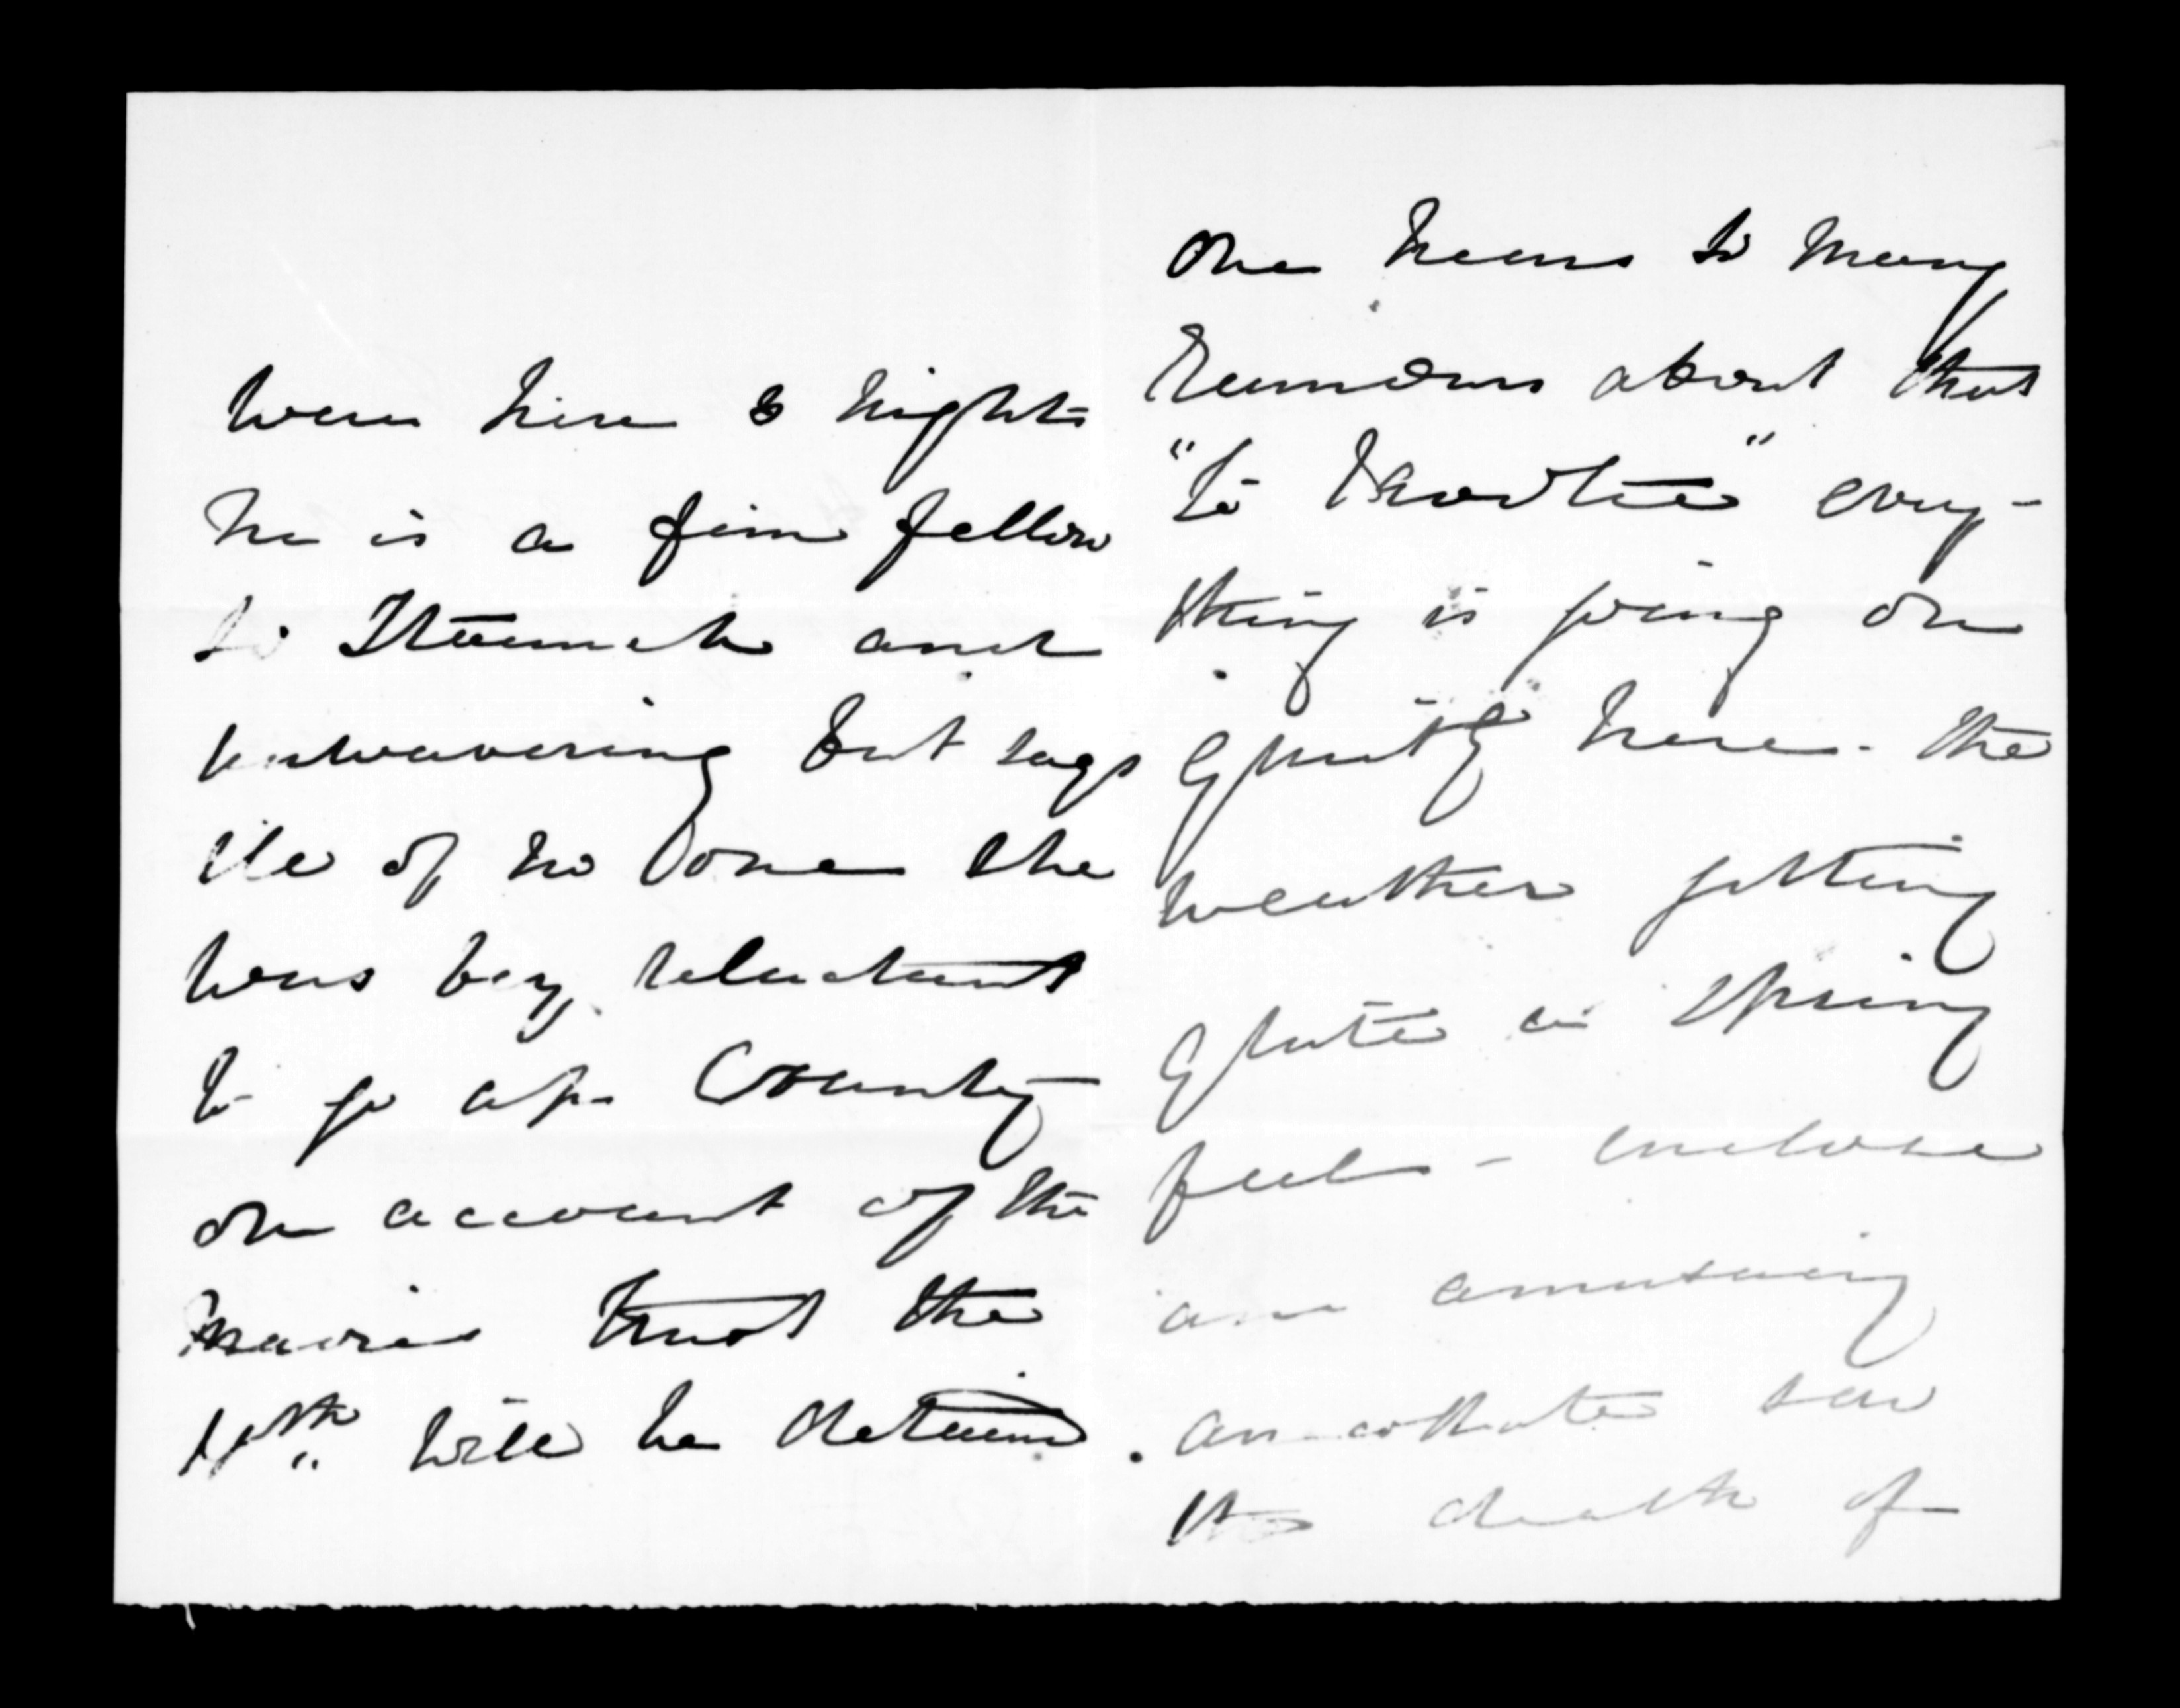 were here to night
he is a fine fellow
so staunch and
unwavering but says
was very reluctant
to go up County
on account of the
Maories trust the
14th will be
One hears so many
Rumours about that
"to Besotted" every-
thing is going on
quietly here - the
weather getting
quite a Spring
feel - enclose
an amusing
the death of